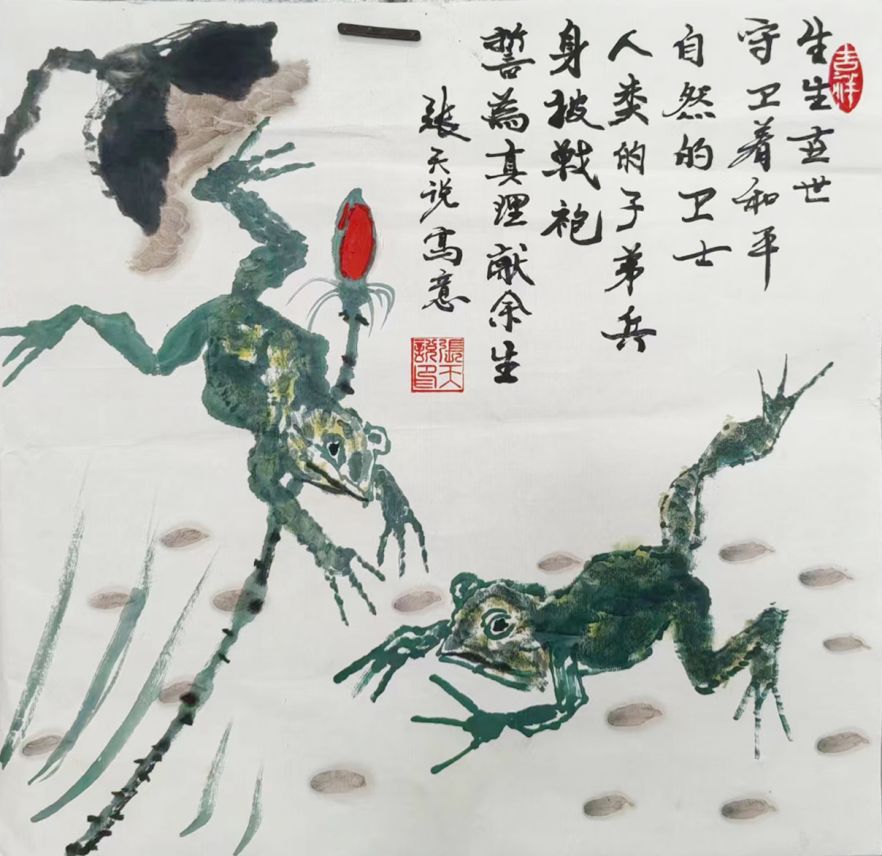 吉祥
生生世
守卫着和平
自然的卫士
人类的子弟兵
身披戦袍
誓為真理献余生
張天说寫意
張天說印